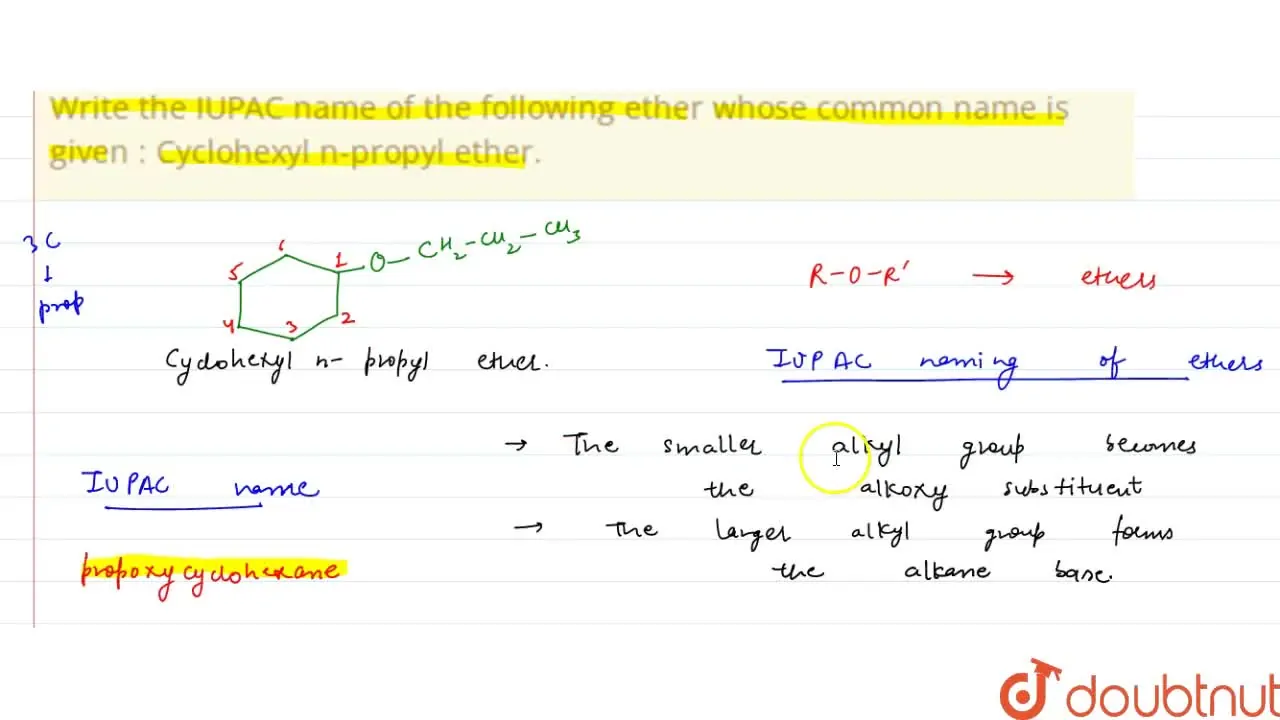 Write the IUPAC name of the following ether whose common name is
given : Cyclohexyl n-propyl ether.
3C
↓
prop
6
5
1
O-CH2-CH2-CH3
4
3
2
Cyclohexyl n- propyl ether.
R-O-R' → ethers
IUPAC naming of ethers
→ The smaller alkyl group becomes
the alkoxy substituent
→ The larger alkyl group forms
the alkane base.
IUPAC name
propoxycyclohexane
doubtnut